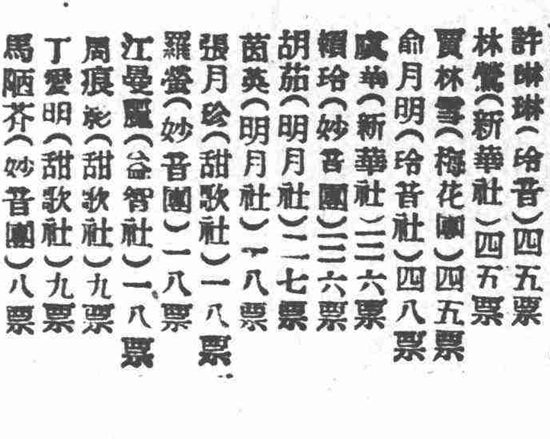 許琳琳(玲音)四五票
林鶯(新華社)四五票
賈林雪(梅花團)四五票
俞月明(玲音社)四八票
虞華(新華社)三六票
頓玲(妙音團)三六票
胡茄(明月社)二七票
茵英(明月社)一八票
張月玲(甜歌社)一八票
羅螢(妙音團)一八票
江曼麗(益智社)一八票
周痕彩(甜歌社)九票
丁愛明(甜歌社)九票
馬陋芥(妙音團)八票